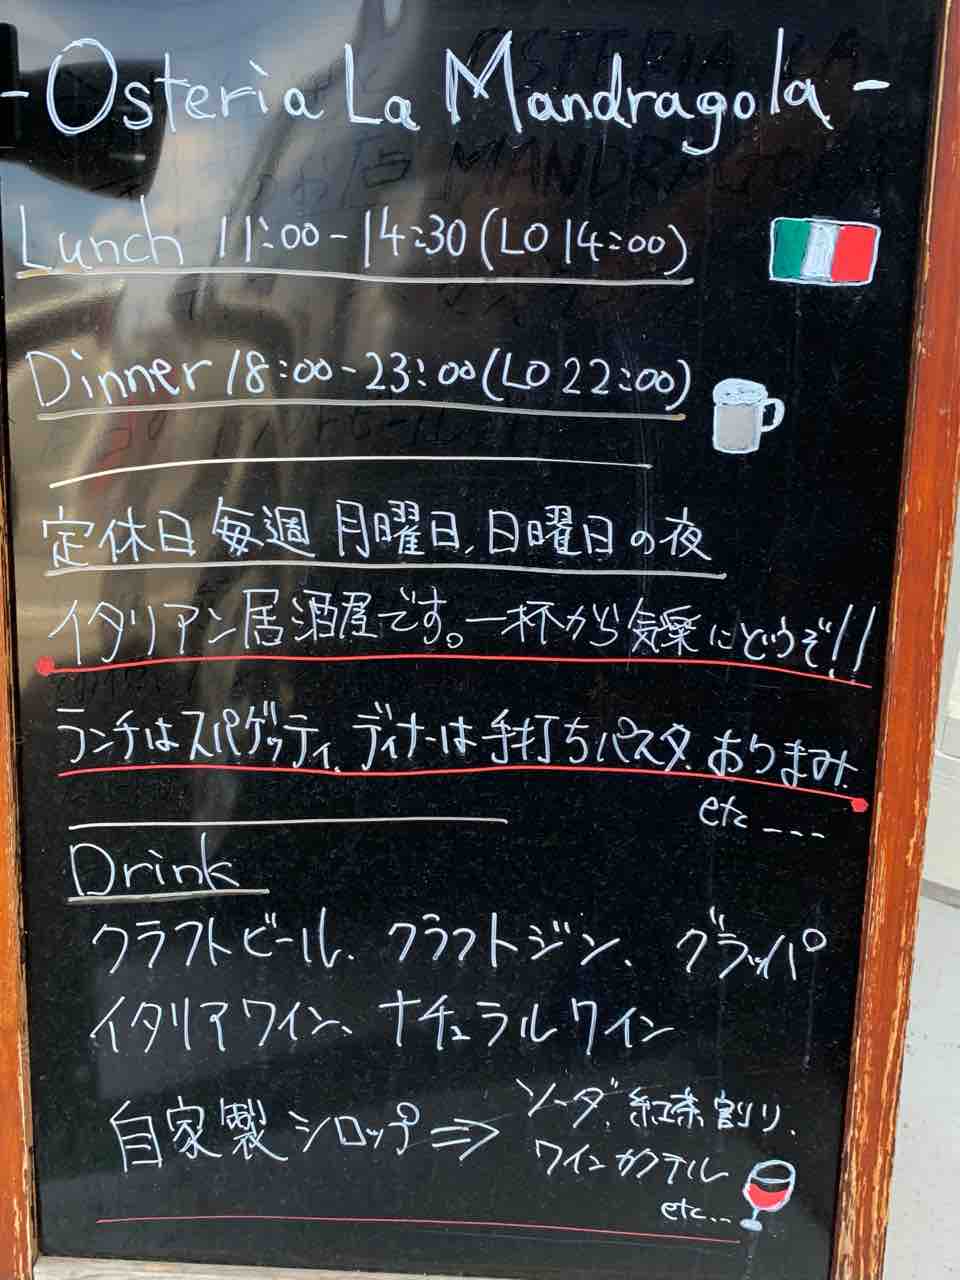 - Osteria La Mandragola -
Lunch 11:00-14:30(LO 14:00)
Dinner 18:00-23:00(LO 22:00)
定休日 毎週 月曜日、日曜日の夜
イタリアン居酒屋です。一杯から気楽にどうぞ!!
ランチはスパゲッティ、ディナーは手打ちパスタ、おつまみ、
etc ---
Drink
クラフトビール、クラフトジン、グラッパ
イタリアワイン、ナチュラルワイン
自家製シロップ⇒
ソーダ、紅茶割り、
ワインカクテル
etc..